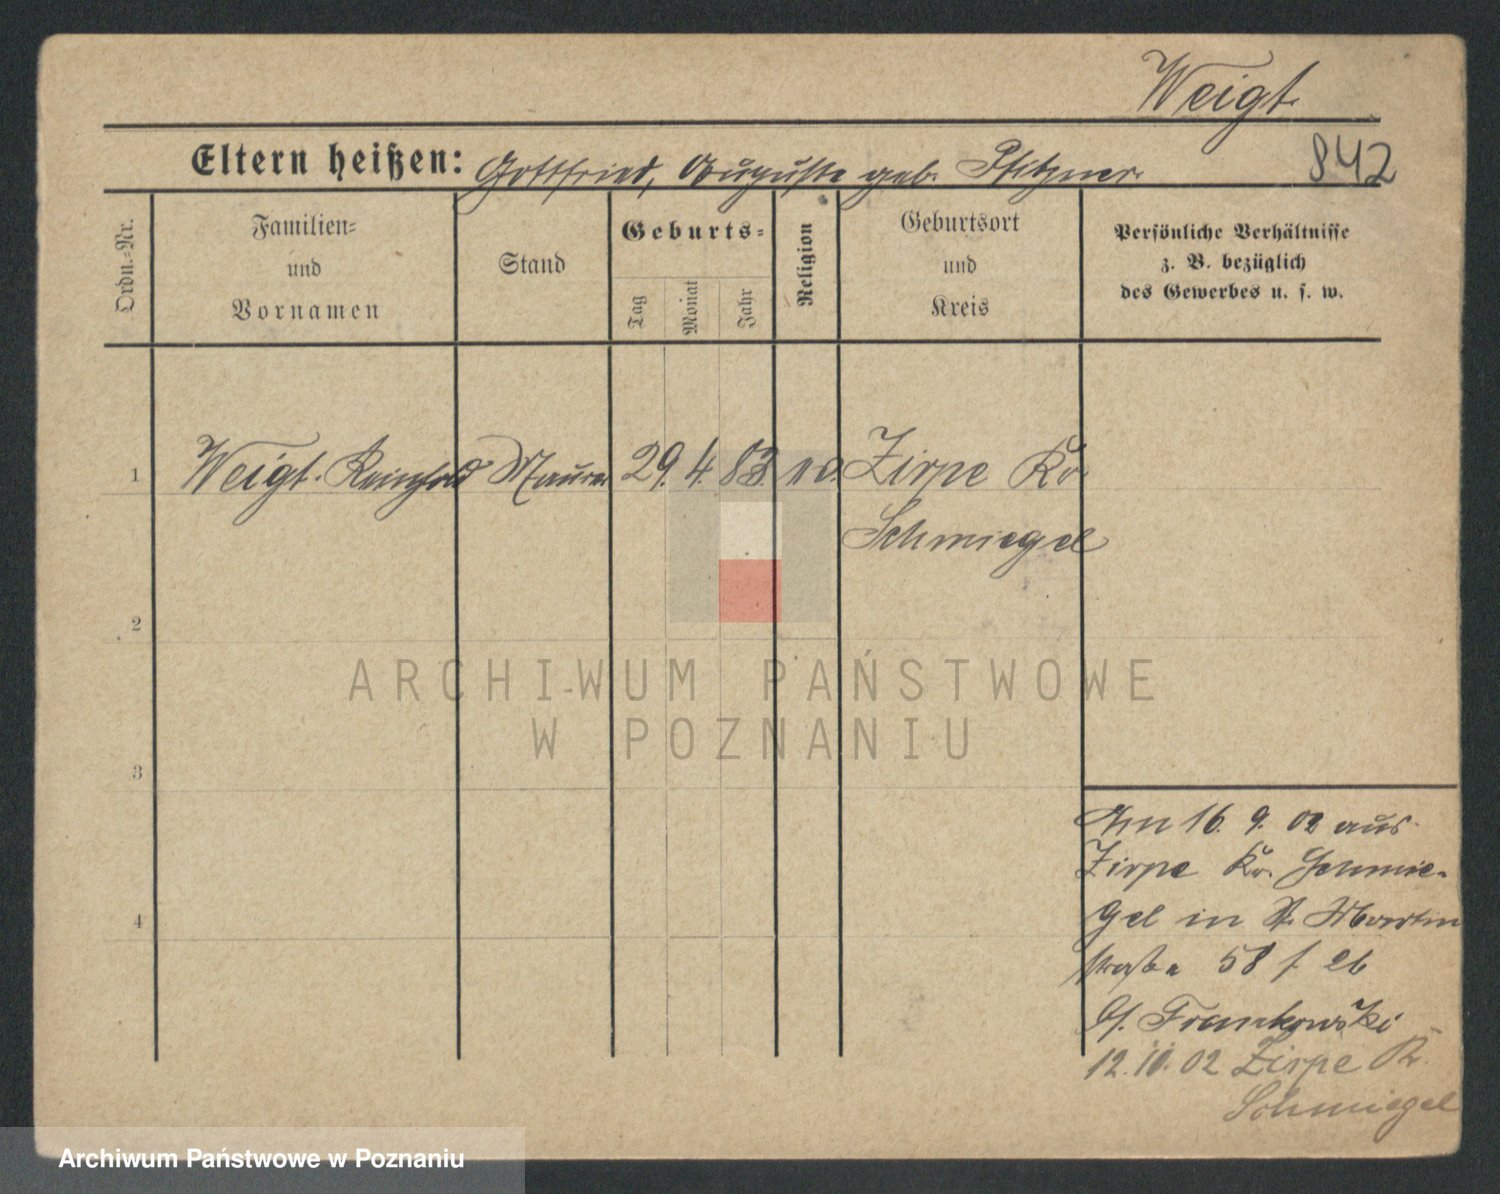 Weigt.
Eltern heißen: Gottfried, Auguste geb. Pfitzner.
842
Ordn.-Nr.
Familien-
und
Vornamen
Stand
Geburts-
Tag
Monat
Jahr
Religion
Geburtsort
und
Kreis
Persönliche Verhältnisse
z. B. bezüglich
des Gewerbes u. s. w.
1 Weigt. Reinhold Maurer 29. 4. 83. Zirpe Kr.
Schmiegel
2
3
4
Am 16. 9. 02 aus
Zirpe Kr. Schmie-
gel in St. Martin
straße 58
Frankowski
12. 10. 02 Zirpe Kr.
Schmiegel
ARCHIWUM PAŃSTWOWE
W POZNANIU
Archiwum Państwowe w Poznaniu